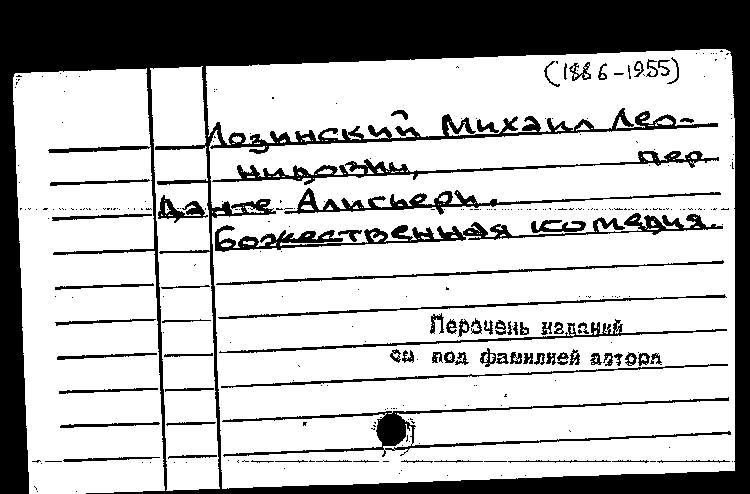 (1886-1955)
Лозинский Михаил Лео-
нидович, пер.
Данте Алигьери.
Божественная комедия.
Перечень изданий
см под фамилией автора